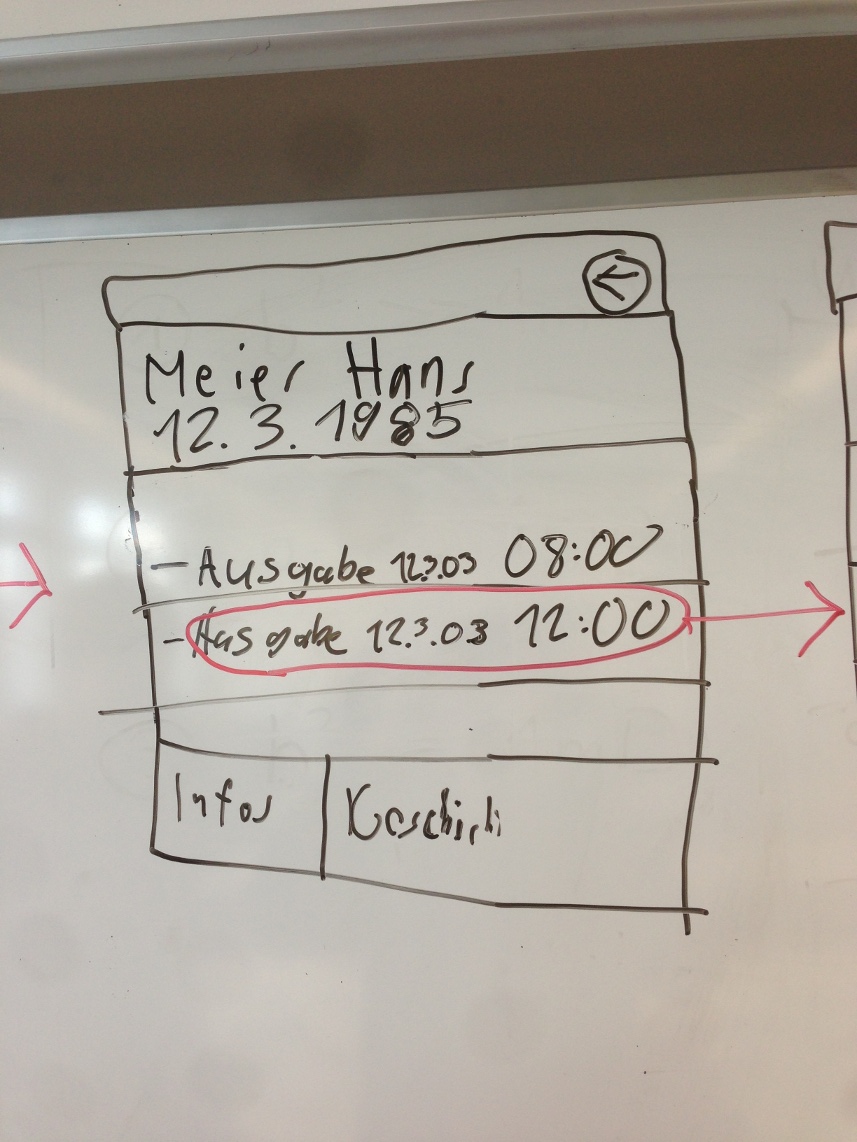 Meier Hans
12.3.1985
– Ausgabe 12.3.03 08:00
– Ausgabe 12.3.03 12:00
Infos